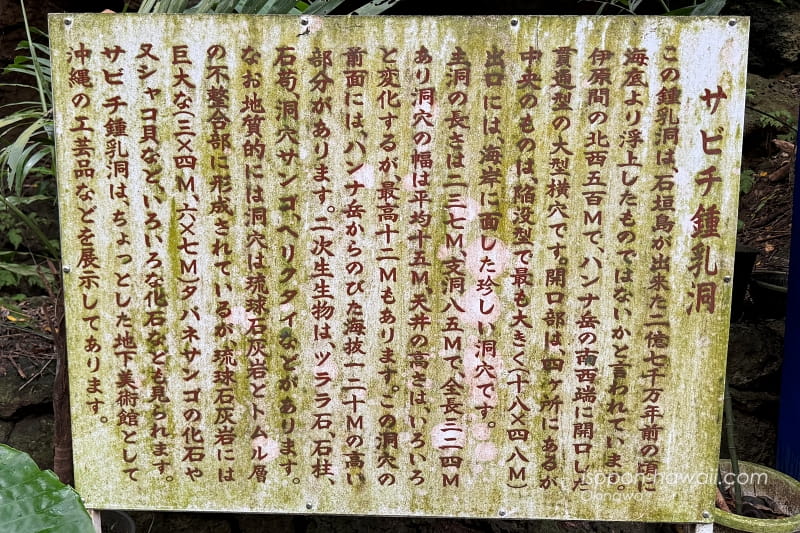 サビチ鍾乳洞
この鍾乳洞は、石垣島が出来た二億七千万年前の頃に
海底より浮上したものではないかと言われています。
伊原間の北西五百Mで、ハンナ岳の南西端に開口した
貫通型の大型横穴です。開口部は、四ヶ所にあるが
中央のものは、陥没型で最も大きく(十八×四八M)
出口には、海岸に面した珍しい洞穴です。
主洞の長さは二三七M、支洞八五Mで、全長三二四M
あり洞穴の幅は平均十五M、天井の高さは、いろいろ
と変化するが、最高十二Mもあります。この洞穴の
前面には、ハンナ岳からのびた海抜一二十Mの高い
部分があります。二次生生物は、ツララ石、石柱、
石筍、洞穴サンゴ、ヘリクタイトなどがあります。
なお地質的には洞穴は琉球石灰岩とトムル層
の不整合部に形成されているが、琉球石灰岩には
巨大な(三×四M、六×七M)タバネサンゴの化石や
又シャコ貝など、いろいろな化石なども見られます。
サビチ鍾乳洞は、ちょっとした地下美術館として
沖縄の工芸品などを展示してあります。
ippon-hawaii.com
Okinawa